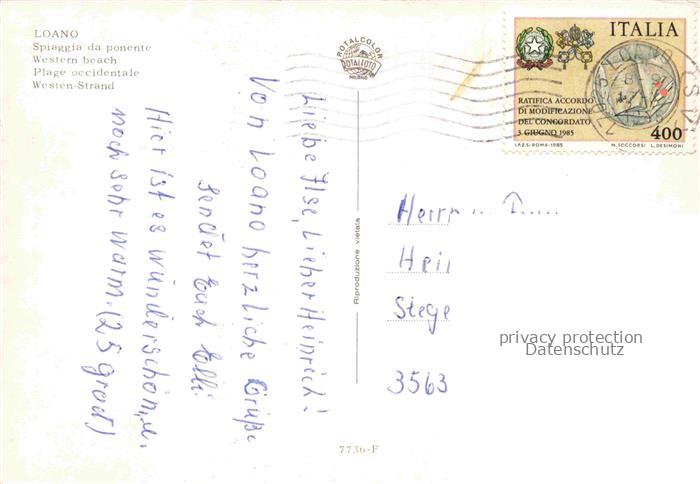 LOANO
Spiaggia da ponente
Western beach
Plage occidentale
Westen-Strand
ROTALCOLOR
ROTALFOTO
MILANO
ITALIA
RATIFICA ACCORDO
DI MODIFICAZIONE
DEL CONCORDATO
3 GIUGNO 1985
400
I.P.Z.S.-ROMA-1985
M. SOCCORSI
L. DESIMONI
Liebe Ilse, Lieber Heinrich!
Von Loano herzliche Grüße
sendet Euch Elli
Hier ist es wunderschön, u.
noch sehr warm. (25 grad)
Riproduzione vietata
Herrn
Hei
Stege
3563
privacy protection
Datenschutz
7736-F